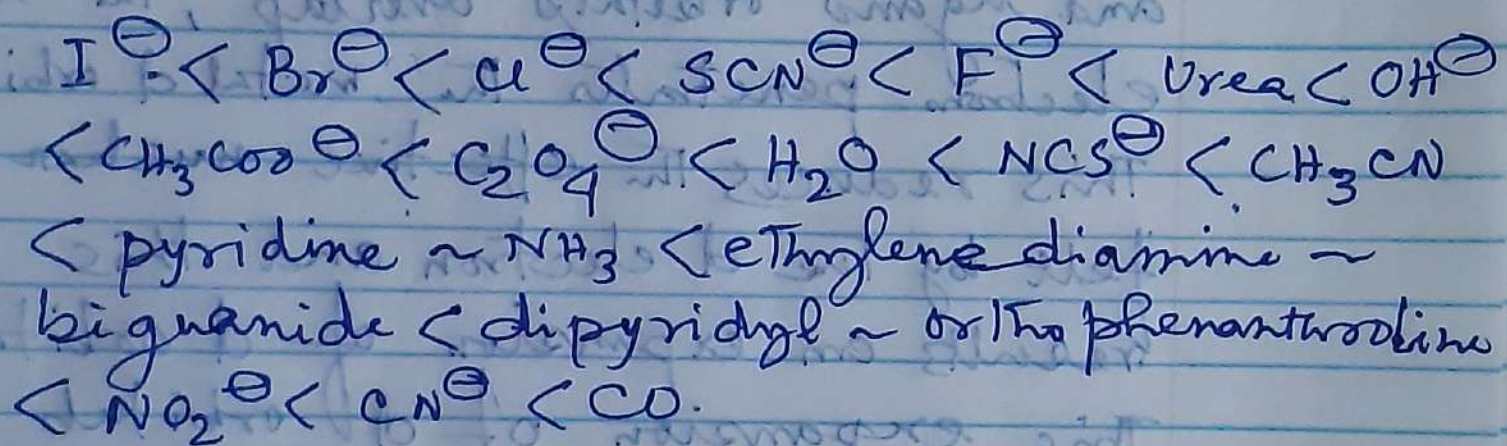 I⊖ < Br⊖ < Cl⊖ < SCN⊖ < F⊖ < Urea < OH⊖
< CH₃COO⊖ < C₂O₄⊖ < H₂O < NCS⊖ < CH₃CN
< pyridine ~ NH₃ < ethylene diamine ~
biguanide < dipyridyl ~ ortho phenanthroline
< NO₂⊖ < CN⊖ < CO.